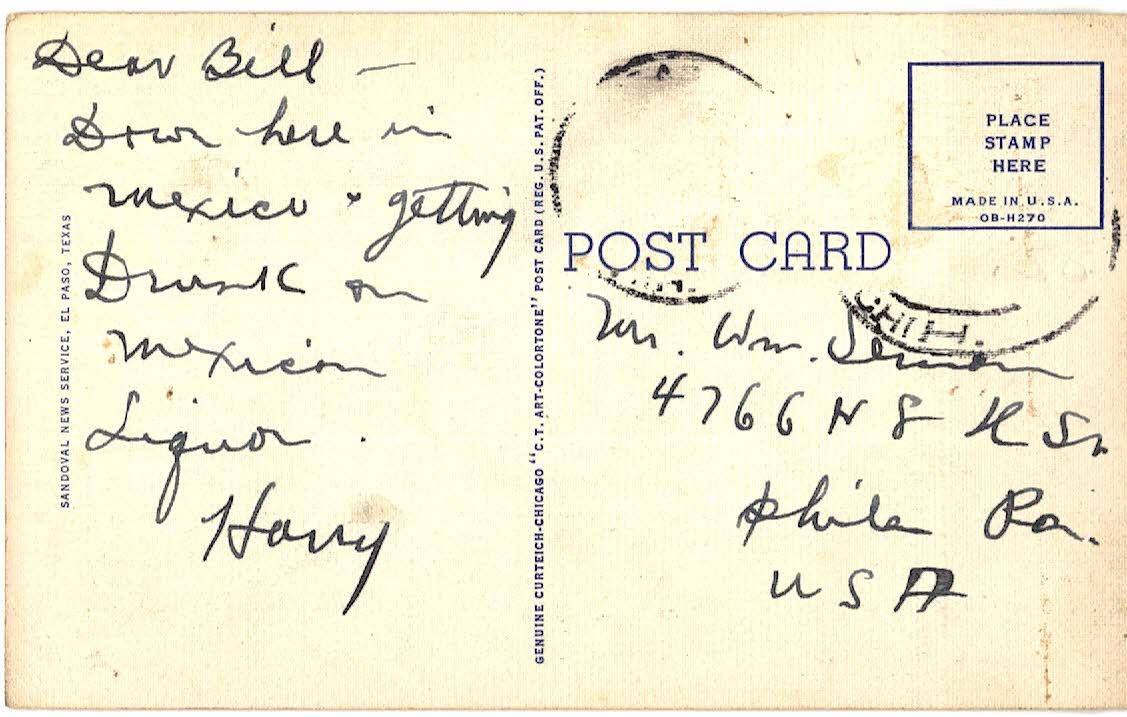 Dear Bill —
Down here in
Mexico + getting
Drunk on
Mexican
Liquor.
Harry
SANDOVAL NEWS SERVICE, EL PASO, TEXAS
GENUINE CURTEICH-CHICAGO "C.T. ART-COLORTONE" POST CARD (REG. U.S. PAT. OFF.)
PLACE
STAMP
HERE
MADE IN U.S.A.
OB-H270
POST CARD
CHIH.
Mr. Wm.
4766 N 8
Phila Pa.
USA